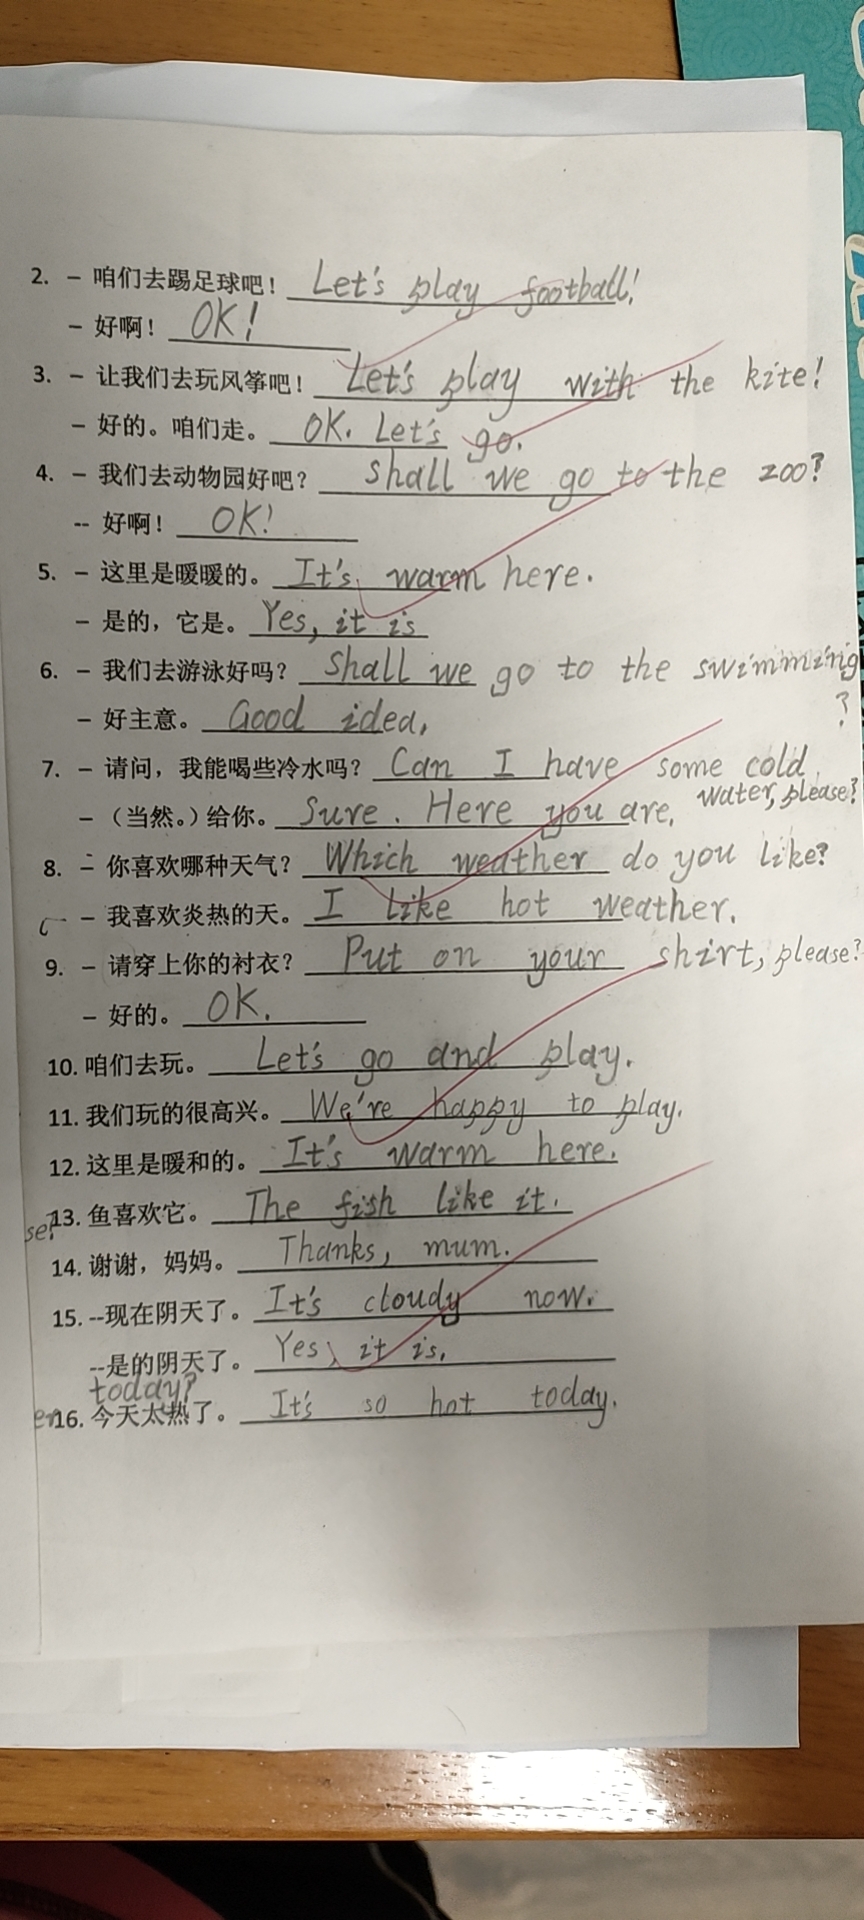 2. – 咱们去踢足球吧！ Let's play football!
– 好啊！ OK!
3. – 让我们去玩风筝吧！ Let's play with the kite!
– 好的。咱们走。 OK. Let's go.
4. – 我们去动物园好吧？ Shall we go to the zoo?
-- 好啊！ OK!
5. – 这里是暖暖的。 It's warm here.
– 是的，它是。 Yes, it is
6. – 我们去游泳好吗？ Shall we go to the swimming
?
– 好主意。 Good idea,
7. – 请问，我能喝些冷水吗？ Can I have some cold
water, please?
– （当然。）给你。 Sure. Here you are.
8. – 你喜欢哪种天气？ Which weather do you like?
– 我喜欢炎热的天。 I like hot weather.
9. – 请穿上你的衬衣？ Put on your shirt, please?
– 好的。 OK.
10. 咱们去玩。 Let's go and play.
11. 我们玩的很高兴。 We're happy to play.
12. 这里是暖和的。 It's warm here.
se?
13. 鱼喜欢它。 The fish like it.
14. 谢谢，妈妈。 Thanks, mum.
15. --现在阴天了。 It's cloudy now.
--是的阴天了。 Yes, it is.
today?
er
16. 今天太热了。 It's so hot today.